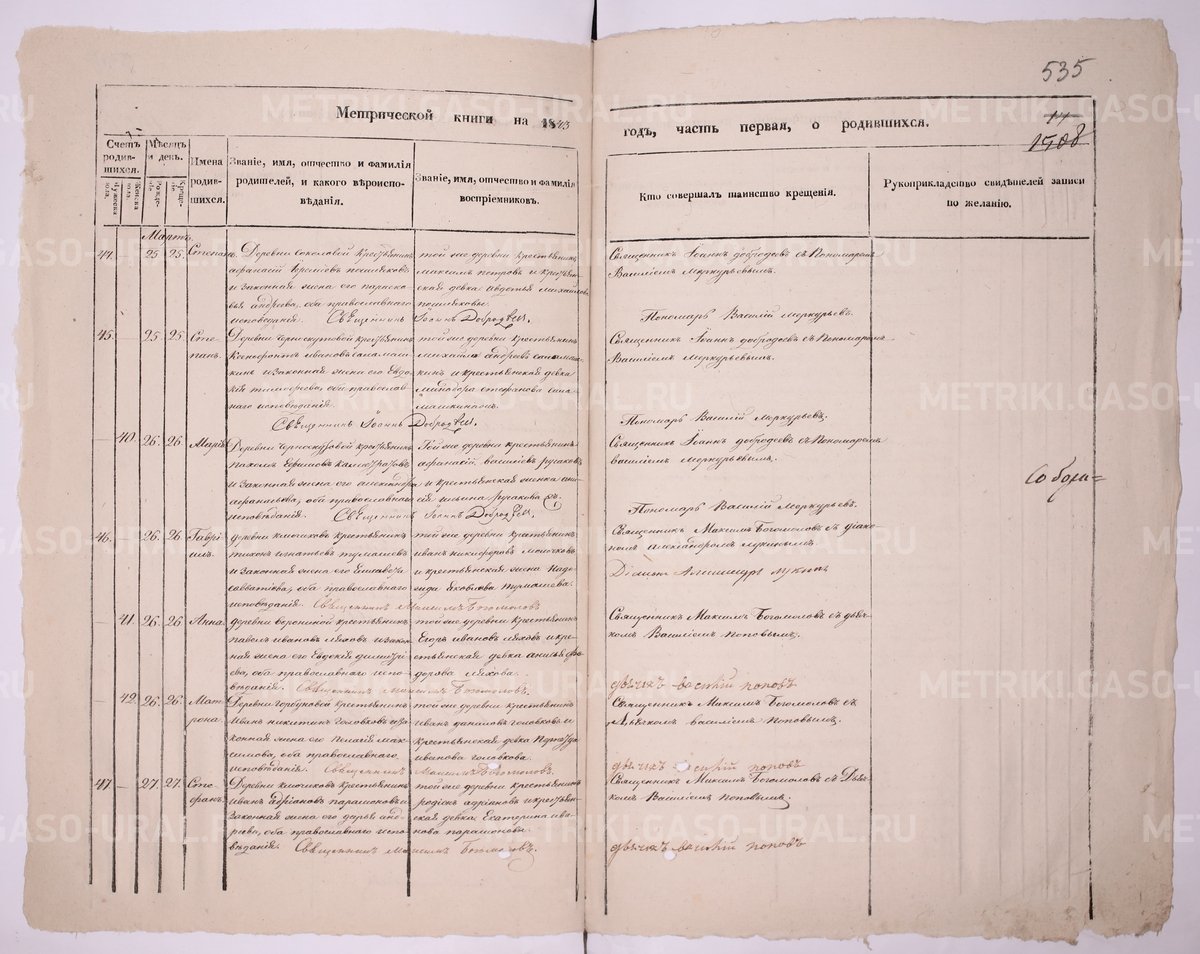 535
Метрической книги на 1843
годъ, часть первая, о родившихся.
1508
Счетъ родившихся.
Мѣсяцъ и день.
Имена родившихся.
Званіе, имя, отчество и фамилія родителей, и какого вѣроисповѣданія.
Званіе, имя, отчество и фамилія воспріемниковъ.
Кто совершалъ таинство крещенія.
Рукоприкладство свидѣтелей записи по желанію.
Мартъ.
44. 25 25. Степанъ.
Деревни Соколовой крестьянинъ
и законная жена его
андреева, оба православнаго
исповѣданія. Священникъ Іоаннъ Добродѣевъ.
той же деревни крестьянинъ
максимъ петровъ и крестьян-
ская девка авдотья михайлова
Священникъ Іоаннъ добродеевъ съ Пономаремъ
Василіемъ Меркурьевымъ.
Пономарь Василій Меркурьевъ.
45. 25 25. Сте-
панъ.
Ксенофонтъ ивановъ
и законная жена его Евдо-
кія тимофеева, оба православ-
наго исповѣданія.
Священникъ Іоаннъ Добродѣевъ.
той же деревни крестьянинъ
михайла андреевъ
и крестьянская девка
Священникъ Іоаннъ добродеевъ съ Пономаремъ
Василіемъ Меркурьевымъ.
Пономарь Василій Меркурьевъ.
40. 26. 26. Марія
Пахомъ Ефимовъ
и законная жена его александра
афанасьева, оба православнаго
исповѣданія. Священникъ Іоаннъ Добродѣевъ.
Той же деревни крестьянинъ
афанасій василіевъ русаковъ
и крестьянская женка
ильина русакова
Священникъ Іоаннъ добродеевъ съ Пономаремъ
василіемъ меркурьевымъ.
Пономарь Василій Меркурьевъ.
Собора=
46. 26. 26 Гаврі-
илъ.
деревни ключиковъ крестьянинъ
тихонъ игнатьевъ
и законная жена его Елисавета
савватіева, оба православнаго
исповѣданія. Священникъ Максимъ Богомоловъ
той же деревни крестьянинъ
иванъ никифоровъ
и крестьянская жена
Яковлева
Священникъ Максимъ Богомоловъ съ діако-
номъ александромъ лукинымъ
Діаконъ Александръ Лукинъ
41. 26. 26 Анна.
деревни ворониной крестьянинъ
павелъ ивановъ ляховъ и закон-
ная жена его Евдокія димитрі-
ева, оба православнаго испо-
вѣданія. Священникъ Максимъ Богомоловъ.
той же деревни крестьянинъ
Егоръ ивановъ ляховъ и кре-
стьянская девка анисья фе-
дорова ляхова.
Священникъ Максимъ Богомоловъ съ дьяч-
комъ Василіемъ поповымъ.
дьячекъ василій поповъ
42. 26. 26. Мат-
рона.
Деревни горбуновой крестьянинъ
Иванъ никитинъ головковъ и за-
конная жена его Пелагія мак-
симова, оба православнаго
исповѣданія. Священникъ Максимъ Богомоловъ.
той же деревни крестьянинъ
иванъ даниловъ головковъ и
крестьянская девка
иванова головкова.
Священникъ Максимъ Богомоловъ съ
Дьячкомъ василіемъ поповымъ.
дьячекъ василій поповъ
47. 27. 27. Сте-
фанъ.
Деревни ключиковъ крестьянинъ
иванъ адріановъ парамоновъ и
законная жена его дарья анд-
реева, оба православнаго испо-
вѣданія. Священникъ Максимъ Богомоловъ.
той же деревни крестьянинъ
родіонъ адріановъ и крестьян-
ская девка Екатерина ива-
нова парамонова
Священникъ Максимъ Богомоловъ съ Дьяч-
комъ Василіемъ поповымъ.
дьячекъ василій поповъ
METRIKI.GASO-URAL.RU